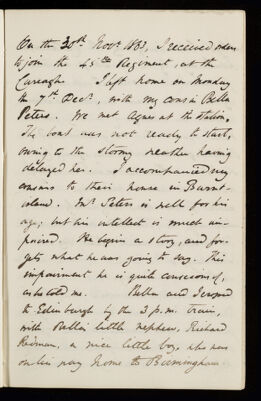 On the 30th Novr 1863, I received orders
to join the 45th Regiment at the
Curragh. I left home on Monday
the 7th Decr, with my cousin Bella
Peters. We met Agnes at the Station.
The boat was not ready to start,
owing to the stormy weather having
delayed her. I accompanied my
cousins to their house in Burnt-
island. Mr Peters is well for his
age; but his intellect is much im-
paired. He begins a story, and for-
gets what he was going to say. This
impairment he is quite conscious of,
as he told me. Bella and I crossed
to Edinburgh by the 3 p.m. train,
with Bella's little nephew, Richard
a nice little boy, who was
on his way home to Birmingham